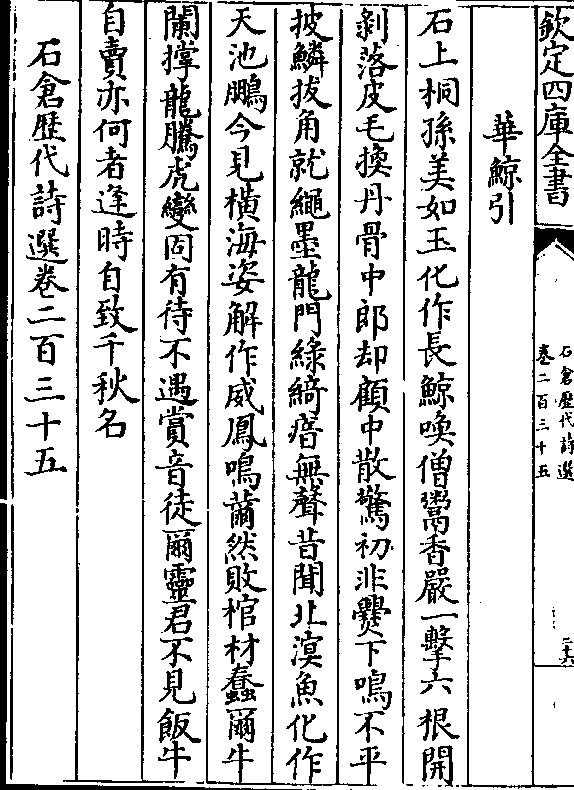 欽定四庫全書
石倉歷代詩選
卷二百三十五
二十六
華鯨引
石上桐孫美如玉化作長鯨喚僧粥香嚴一擊六根開
剝落皮毛換丹骨中郎却顧中散驚初非爨下鳴不平
披鱗拔角就繩墨龍門綠綺瘖無聲昔聞北溟魚化作
天池鵬今見橫海姿解作威鳳鳴薾然敗棺材蠢爾牛
闌撑龍騰虎變固有待不遇賞音徒爾靈君不見飯牛
自賣亦何者逢時自致千秋名
石倉歷代詩選卷二百三十五